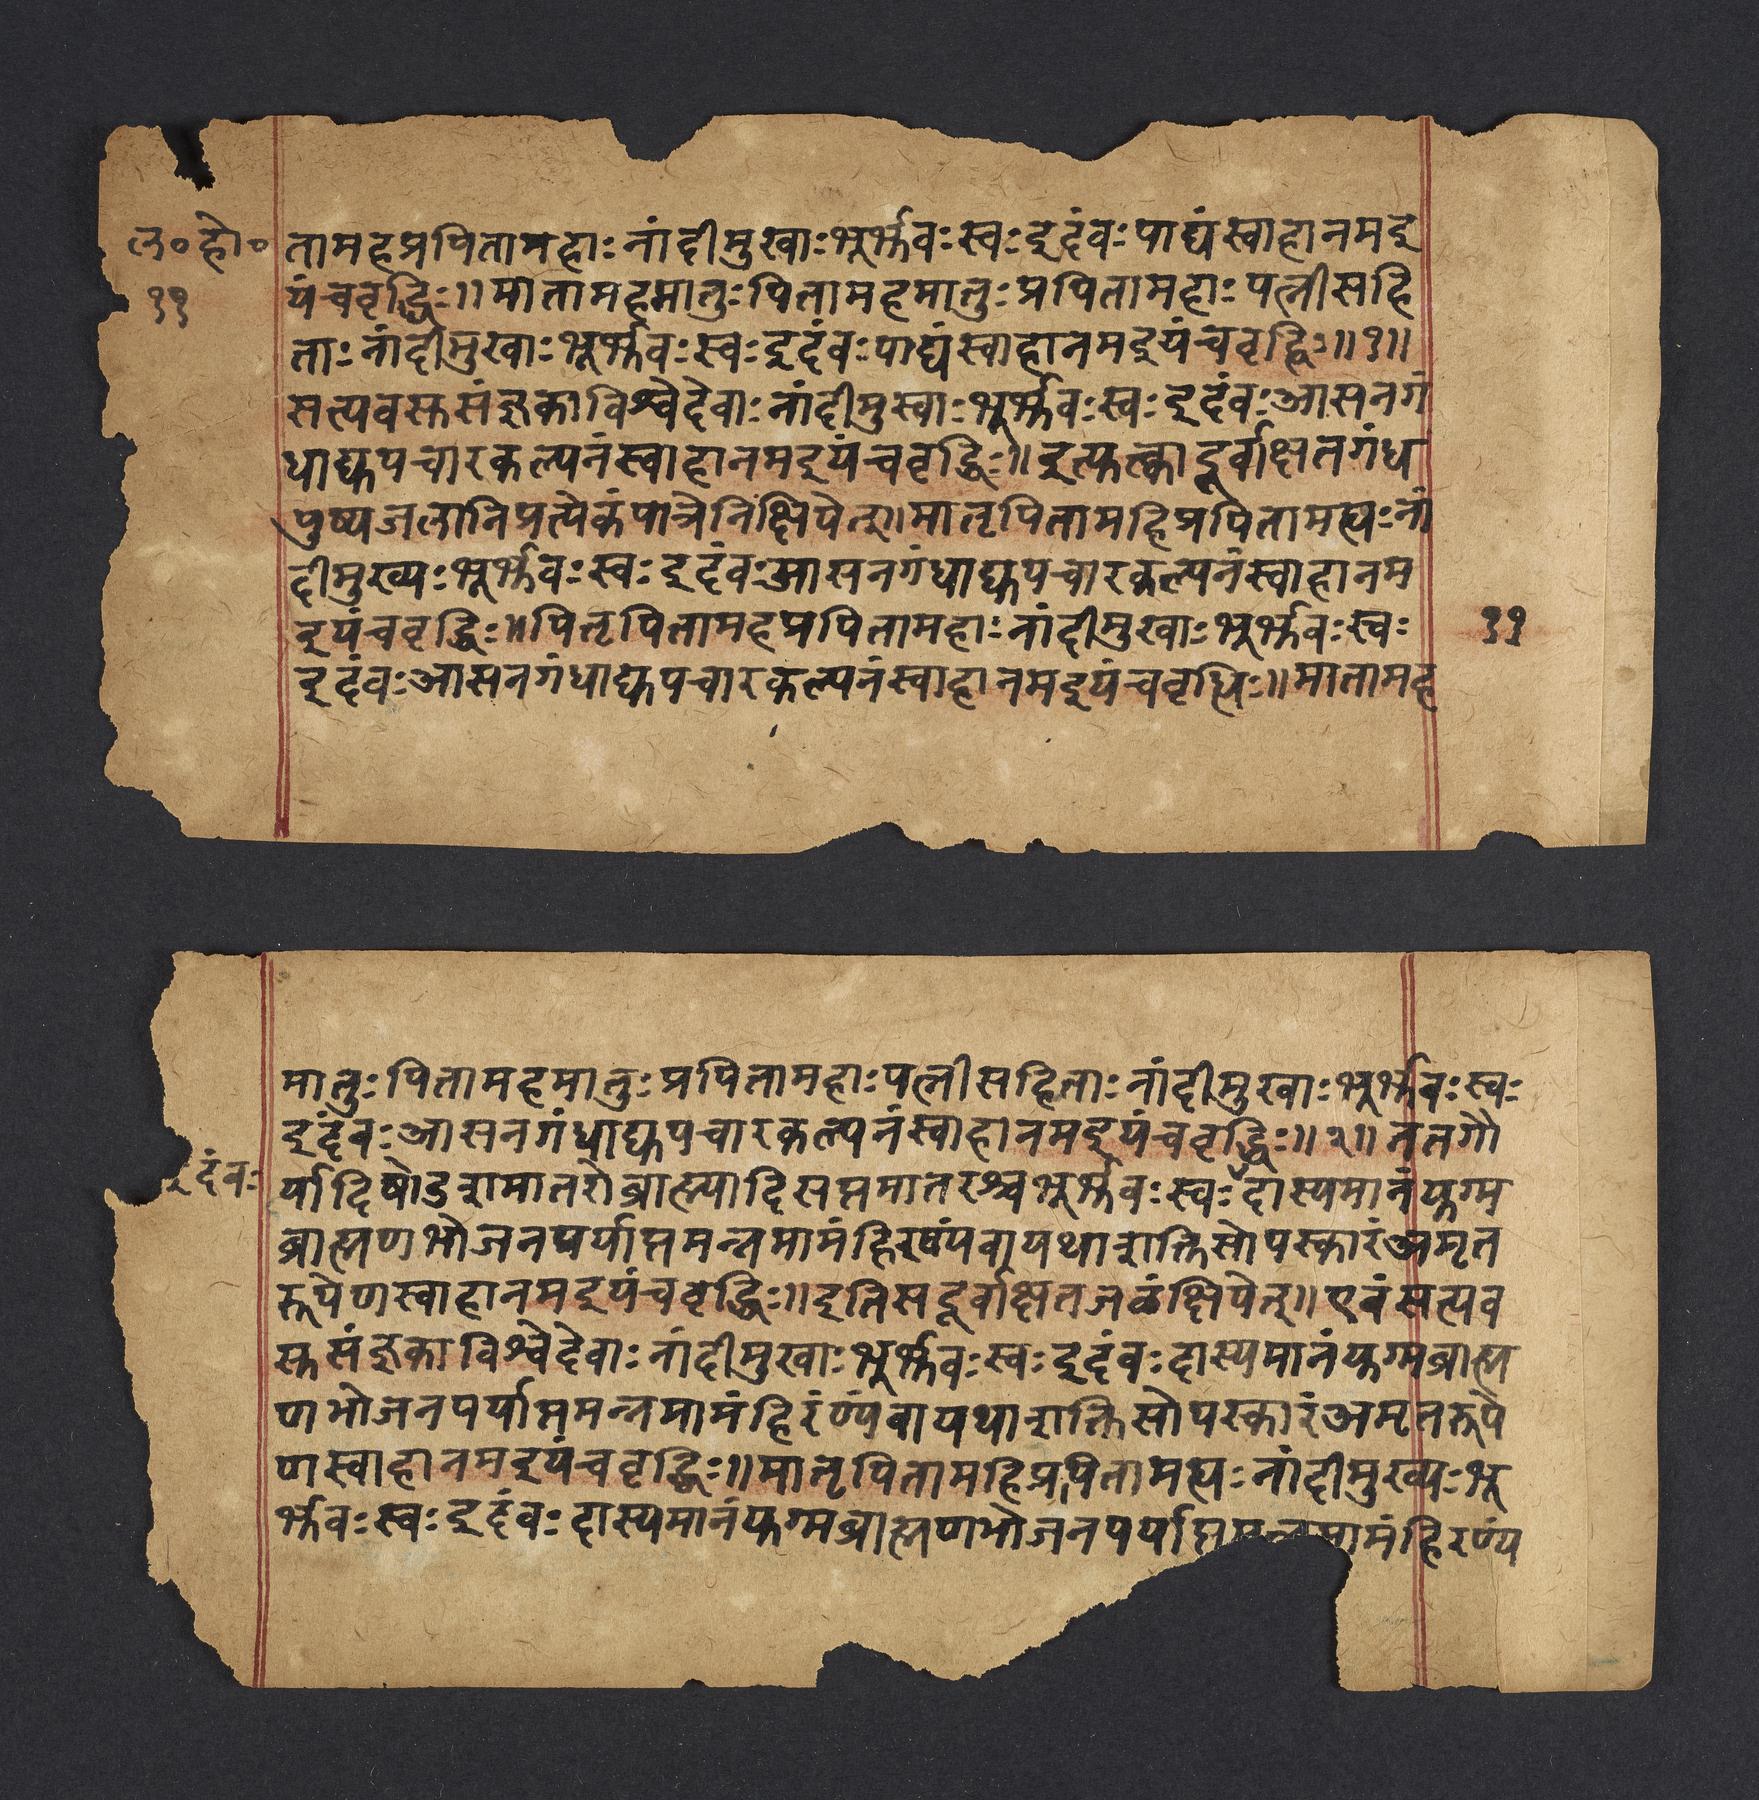 ल॰हो॰
११
तामहप्रपितामहाः नांदीमुखाः भूर्भुवः स्वः इदंवः पाद्यंस्वाहानमइ
यंचवृद्धिः ॥ मातामहमातुः पितामहमातुः प्रपितामहाः पत्नीसहि
ताः नांदीमुखाः भूर्भुवः स्वः इदंवः पाद्यंस्वाहानमइयंचवृद्धिः ॥१॥
सत्यवसुसंज्ञकाविश्वेदेवाः नांदीमुखाः भूर्भुवः स्वः इदंवः आसनगं
धाद्युपचारकल्पनंस्वाहानमइयंचवृद्धिः ॥ इत्युक्त्वादूर्वाक्षतगंध
पुष्पजलानिप्रत्येकंपात्रेनिंक्षिपेत् ॥ मातृपितामहिप्रपितामह्यः नां
दीमुख्यः भूर्भुवः स्वः इदंवः आसनगंधाद्युपचारकल्पनंस्वाहानम
इयंचवृद्धिः ॥ पितृपितामहप्रपितामहाः नांदीमुखाः भूर्भुवः स्वः
इदंवः आसनगंधाद्युपचारकल्पनंस्वाहानमइयंचवृध्धिः ॥ मातामह
११
मातुः पितामहमातुः प्रपितामहाः पत्नीसहिताः नांदीमुखाः भूर्भुवः स्वः
इदंवः आसनगंधाद्युपचारकल्पनंस्वाहानमइयंचवृद्धिः ॥२॥ ततगौ
इदंवः
र्यादिषोडशमातरोब्राह्म्यादिसप्तमातरश्चभूर्भुवः स्वः दास्यमानंयुग्म
ब्राह्मणभोजनपर्याप्तमन्नमामंहिरण्यंवायथाशक्तिसोपस्कारंअमृत
रूपेणस्वाहानमइयंचवृद्धिः ॥ इतिसदूर्वाक्षतजळंक्षिपेत् ॥ एवंसत्यव
सुसंज्ञकाविश्वेदेवाः नांदीमुखाः भूर्भुवः स्वः इदंवः दास्यमानंयुग्मब्राह्म
णभोजनपर्याप्तमन्नमामंहिरंण्यंवायथाशक्तिसोपस्कारंअमृतरूपे
णस्वाहानमइयंचवृद्धिः ॥ मातृपितामहिप्रपितामह्यः नांदीमुख्यः भू
र्भुवः स्वः इदंवः दास्यमानंयुग्मब्राह्मणभोजनपर्याप्तमन्नमामंहिरण्यं